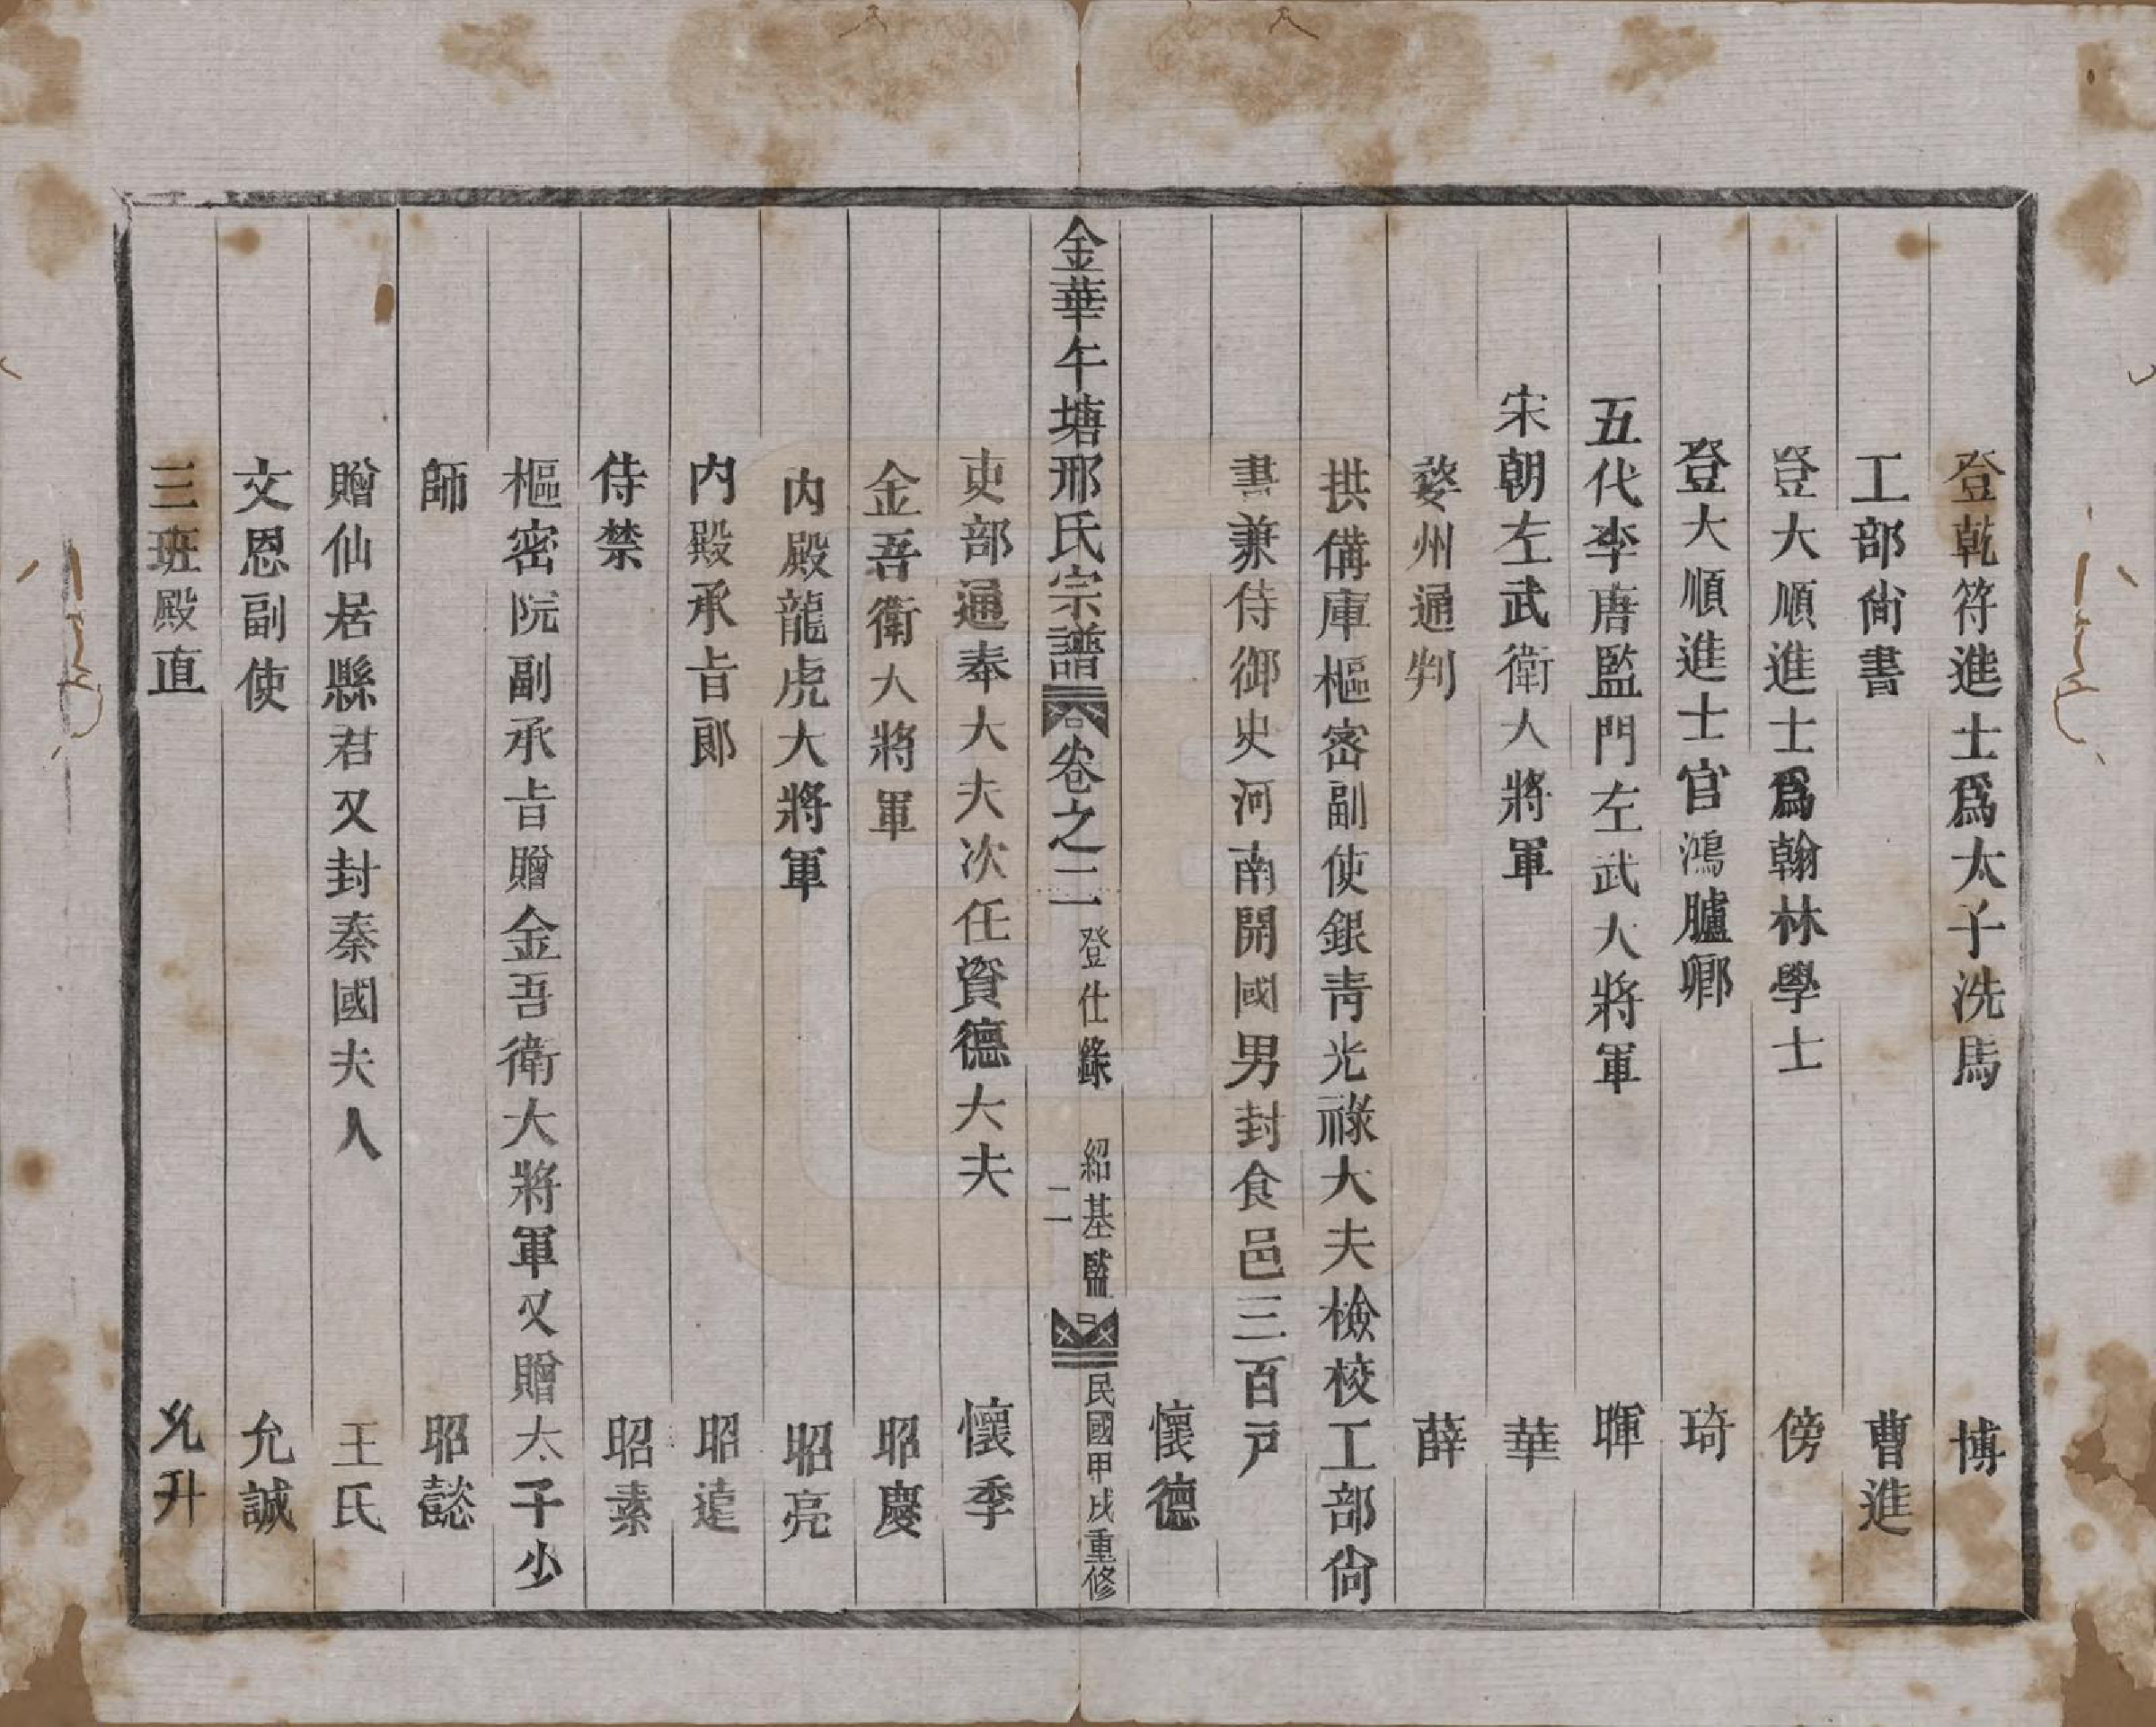 登乾符進士爲太子洗馬 博
工部尙書 曹進
登大順進士爲翰林學士 傍
登大順進士官鴻臚卿 琦
五代李唐監門左武大將軍 暉
宋朝左武衛大將軍 華
婺州通判 薛
拱備庫樞密副使銀青光祿大夫檢校工部尙
書兼侍御史河南開國男封食邑三百戸
懷德
金華午塘邢氏宗譜 卷之二 登仕錄 二 紹基監 民國甲戌重修
吏部通奉大夫次任資德大夫 懷季
金吾衛大將軍 昭慶
内殿龍虎大將軍 昭亮
内殿承㫖郎 昭遠
侍禁 昭素
樞密院副承㫖贈金吾衛大將軍又贈太子少
師 昭懿
贈仙居縣君又封秦國夫人 王氏
文恩副使 允誠
三班殿直 允升